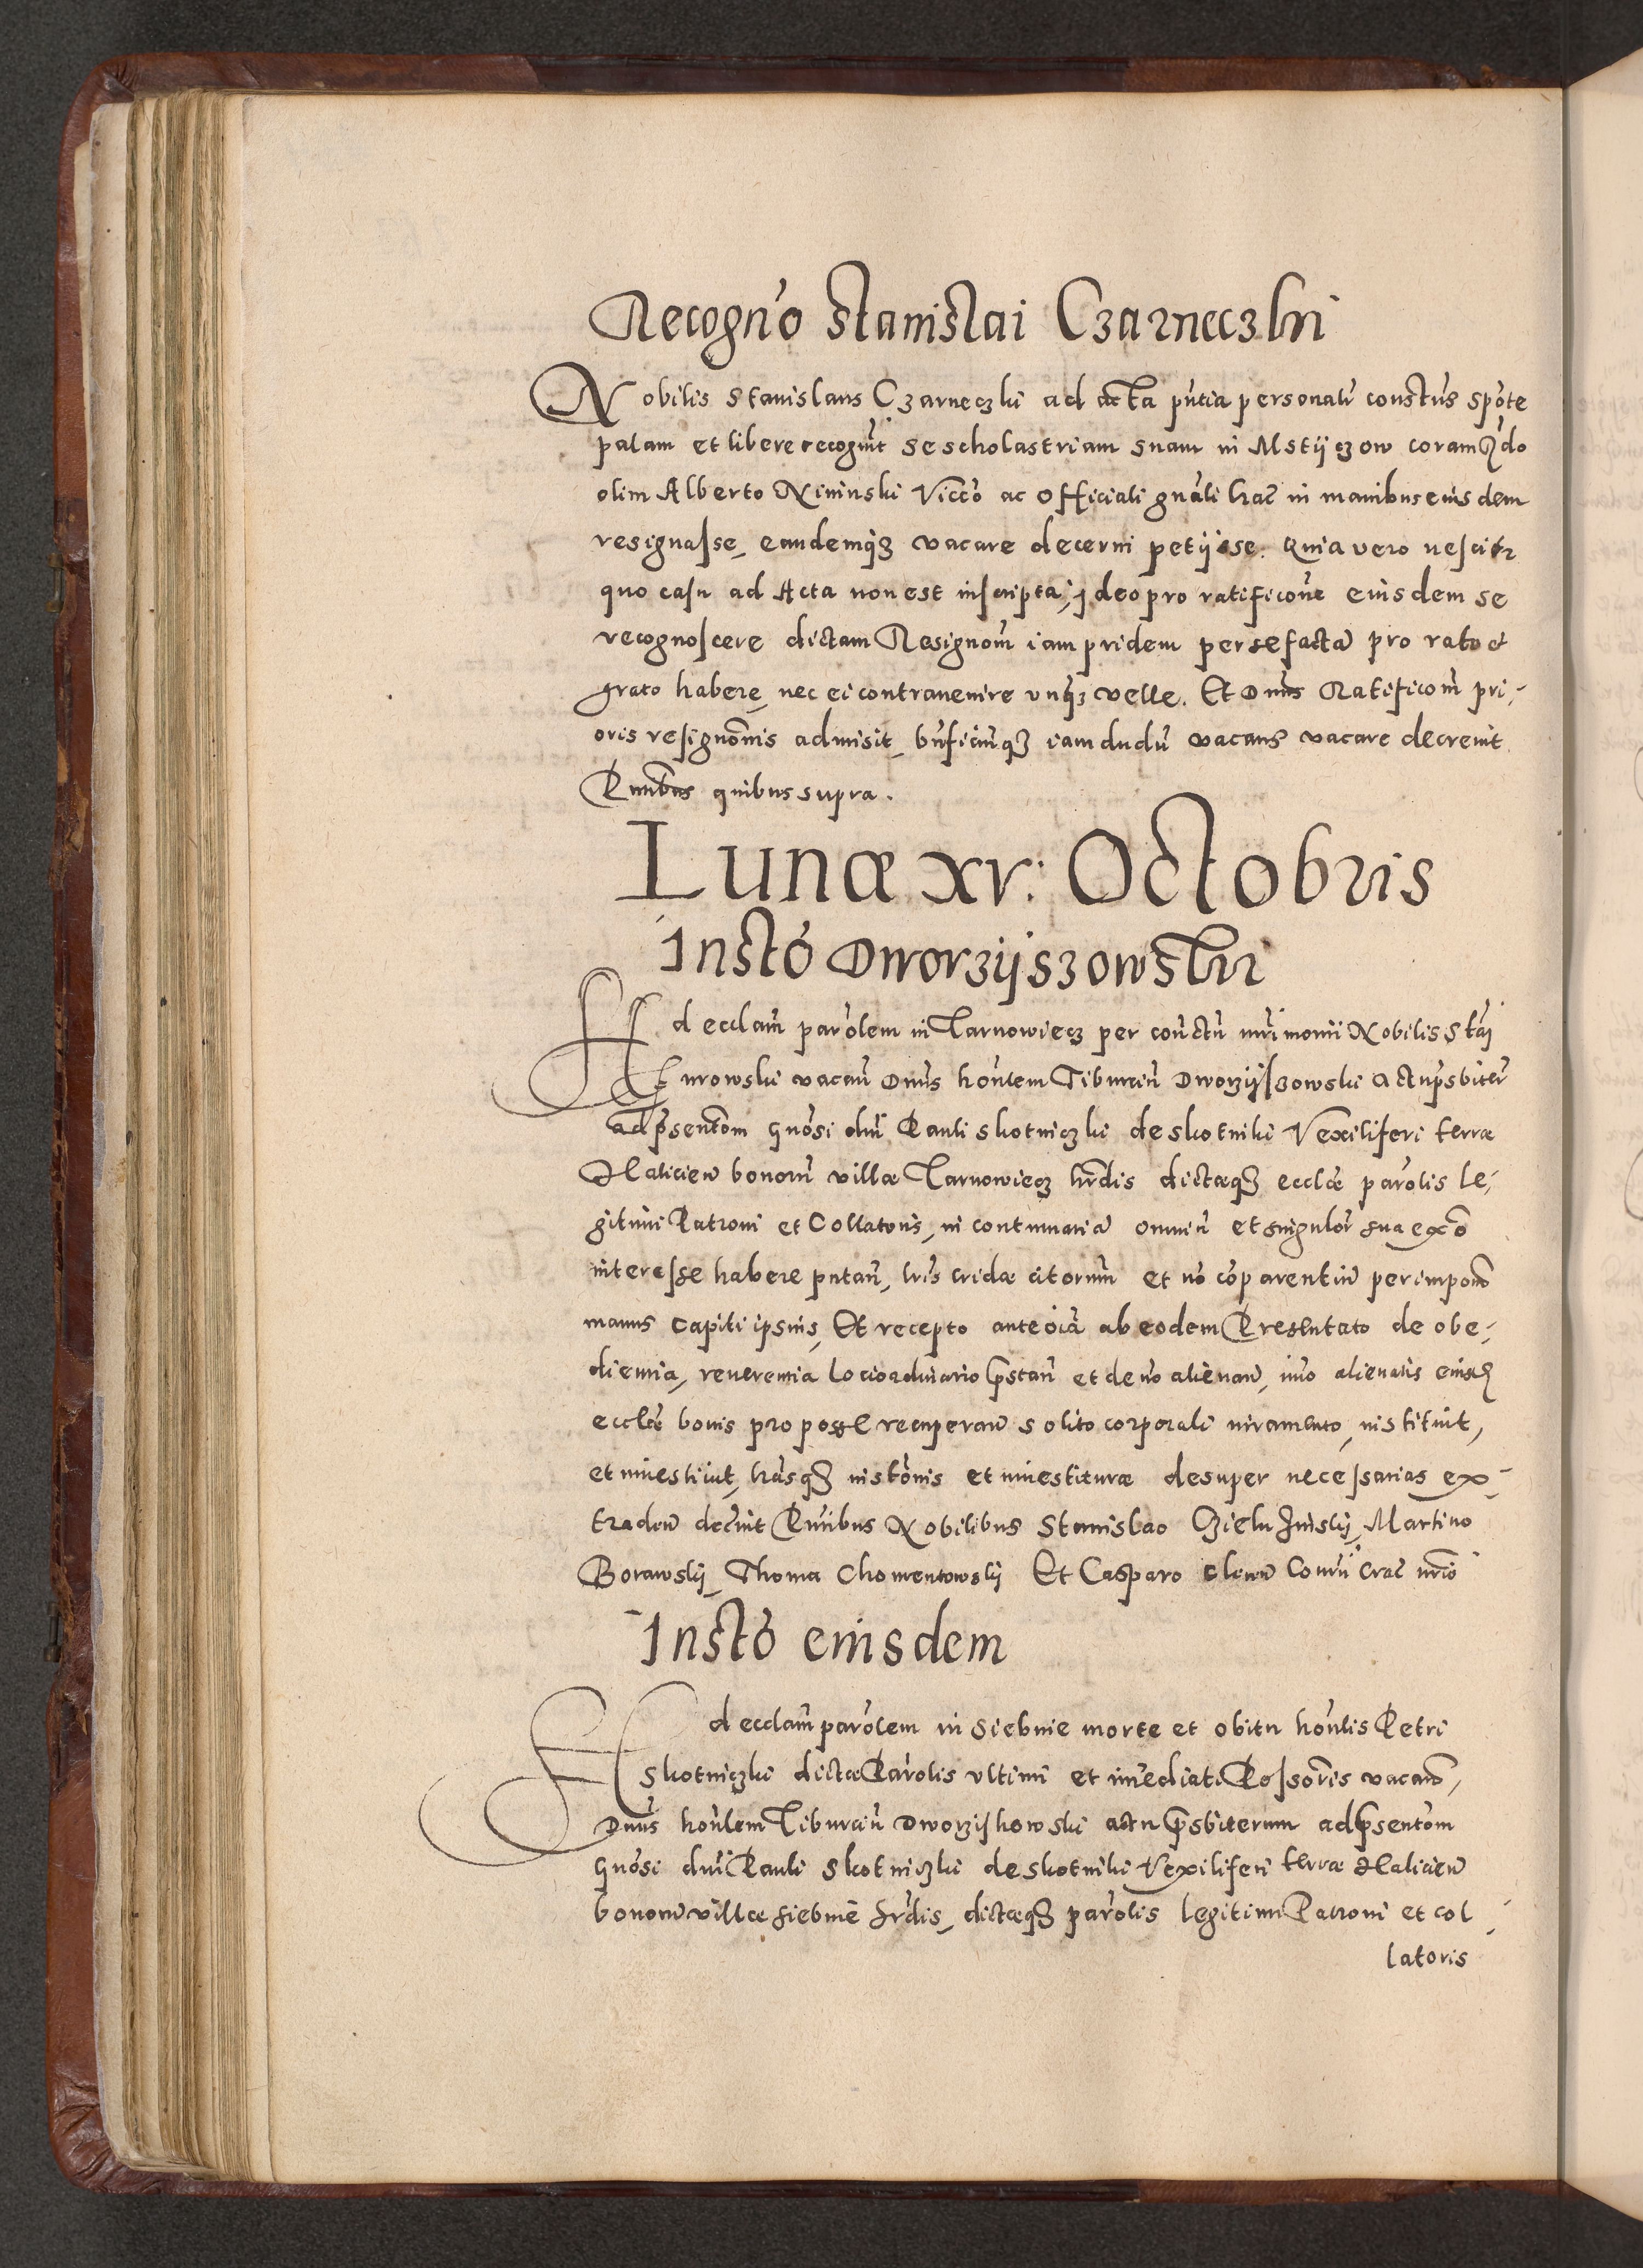 Recogn̄o Stanislai Czarneczki
Nobilis Stanislaus Czarneczki ad acta pn̄tia personalr̄ constt̄us spōte
palam et libere recognīt se scholastriam suam in Mstijczow coram R̄do
olim Alberto Nininski Viccō ac Officiali gn̄ali hac̄ in manibus eiusdem
resignasse, eandemq̄ȝ vacare decerni petijsse. Quia vero nescitr
quo casu ad Acta non est inscripta, jdeo pro ratificōne eiusdem se
recognoscere dictam Resignōm iam pridem per se factā pro rato et
grato habere, nec ei contravenire unq̄ȝ velle. Et Dn̄us Ratificōm pri-
oris resignōnis admisit, bn̄ficiūqȝ iam dudū vacans vacare decrevit
Pn̄tibus quibus supra.
Lunæ xv: Octobris
Instō Dworzijszowski
Ad eccl̄am par̄olem in Tarnowiecz per con̄ctū mr̄imonii Nobilis Stāi
vacan̄ Dn̄us hon̄lem Tiburciū Dworzijszowski actu p̄sbiter̄
ad p̄sentōm Gn̄osi dn̄i Pauli Skotniczki de Skotniki Vexiliferi terræ
Halicien̄ bonorū villæ Tarnowiecz hr̄dis dictæqȝ eccl̄æ par̄olis le-
gitimi Patroni et Collatoris, in contumaciā omniū et singulor̄ sua ex
interesse habere putan̄, lr̄is cridæ citorum̄ et nō cōparentiū per impōnō
manus capiti ipsius, Et recepto ante oīa ab eodem Presentato de obe-
dientia, reverentia loci ordinario p̄stan̄ et de nō alienan̄, imo alienatis eiusd
eccl̄æ bonis pro posse recuperan̄ solito corporali iuramento, instituit,
et investiuit, lr̄asqȝ instōnis et investituræ desuper necessarias ex-
traden̄ decr̄uit Pn̄tibus Nobilibus Stanislao Martino
Borawskij, Thoma Chomentowskij Et Casparo Consrī Crac̄ nr̄io
Instō eiusdem
Ad eccl̄am par̄olem in Siebnie morte et obitu hon̄lis Petri
Skotniczki dictæ Par̄olis ultimi et im̄ediati Possor̄is vacan̄,
Dn̄us hon̄lem Tiburciū Dworzishowski actu p̄sbiterum ad p̄sentōm
Gn̄osi dn̄i Pauli Skotniczki de Skotniki Vexiliferi terræ Halicien̄
bonorū villæ Siebnie hr̄dis, dictæqȝ par̄olis legitimi Patroni et col-
latoris